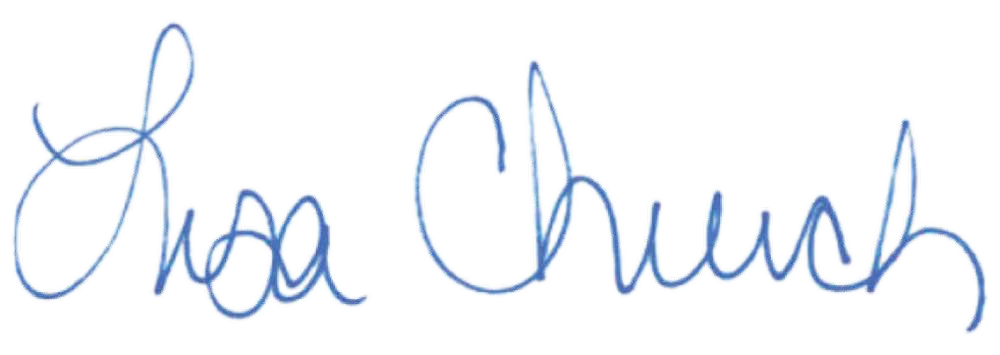 Lisa Church